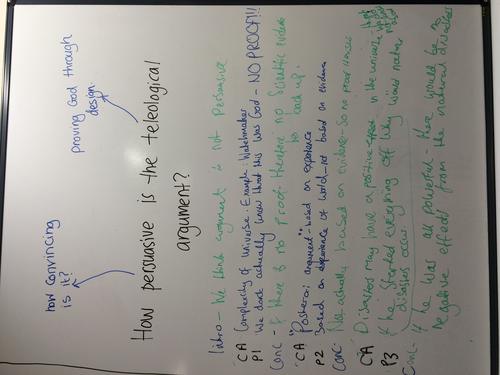 how convincing
is it?
proving God through
design.
How persuasive is the teleological
argument?
Intro - We think argument is not persuasive
CA Complexity of universe. Example: Watchmaker
P1 We don't actually know that this was God - NO PROOF!!!
Conc - If there is no proof therefore no scientific evidence
to back up.
CA "Posteriori argument" - based on experience
P2 Based on experience of world, not based on evidence
Conc: Not actually based on evidence - So no proof it was
CA Disasters may have a positive effect in the universe - that
P3 If he started everything off why would natural
disasters occur.
Conc - If he was all powerful - there would be no
negative effects from the natural disasters